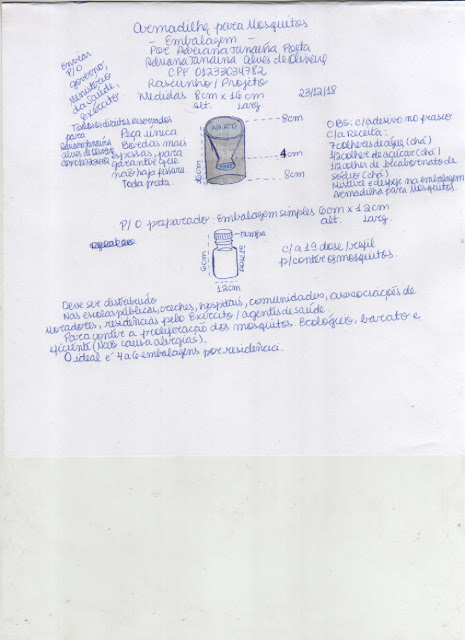 Armadilha para Mosquitos
- Embalagem -
Por Adriana Janaína Poeta
Adriana Janaina Alves de Oliveira
CPF 01233034782
Rascunho / Projeto
Medidas 8cm x 16cm
alt. larg.
23/12/18
Enviar
P/ O
governo,
Ministério
da Saúde,
exército
Todos os direitos reservados
para
Adriana Janaina
Alves de Oliveira
Peça única
Bordas mais
espessas, para
garantir que
não haja fissura.
Toda preta.
ABERTO
8cm
4cm
8cm
16cm
OBS: c/ adesivo no frasco
c/ a receita:
7 colheres de água (chá)
1/2 colher de açúcar (chá)
1/2 colher de bicarbonato de
sódio (chá)
Misture e despeje na embalagem
Armadilha para Mosquitos.
P/ O preparado - Embalagem simples 6cm x 12cm
alt. larg.
tampa
6cm
12cm
c/ a 1ª dose / refil
p/ conter os mosquitos.
Deve ser distribuído
Nas escolas públicas, creches, hospitais, comunidades, associações de
moradores, residências pelo Exército / agentes de saúde.
Para conter a proliferação dos mosquitos. Ecológico, barato e
eficiente (Não causa alergias).
O ideal é 4 a 6 embalagens por residência.